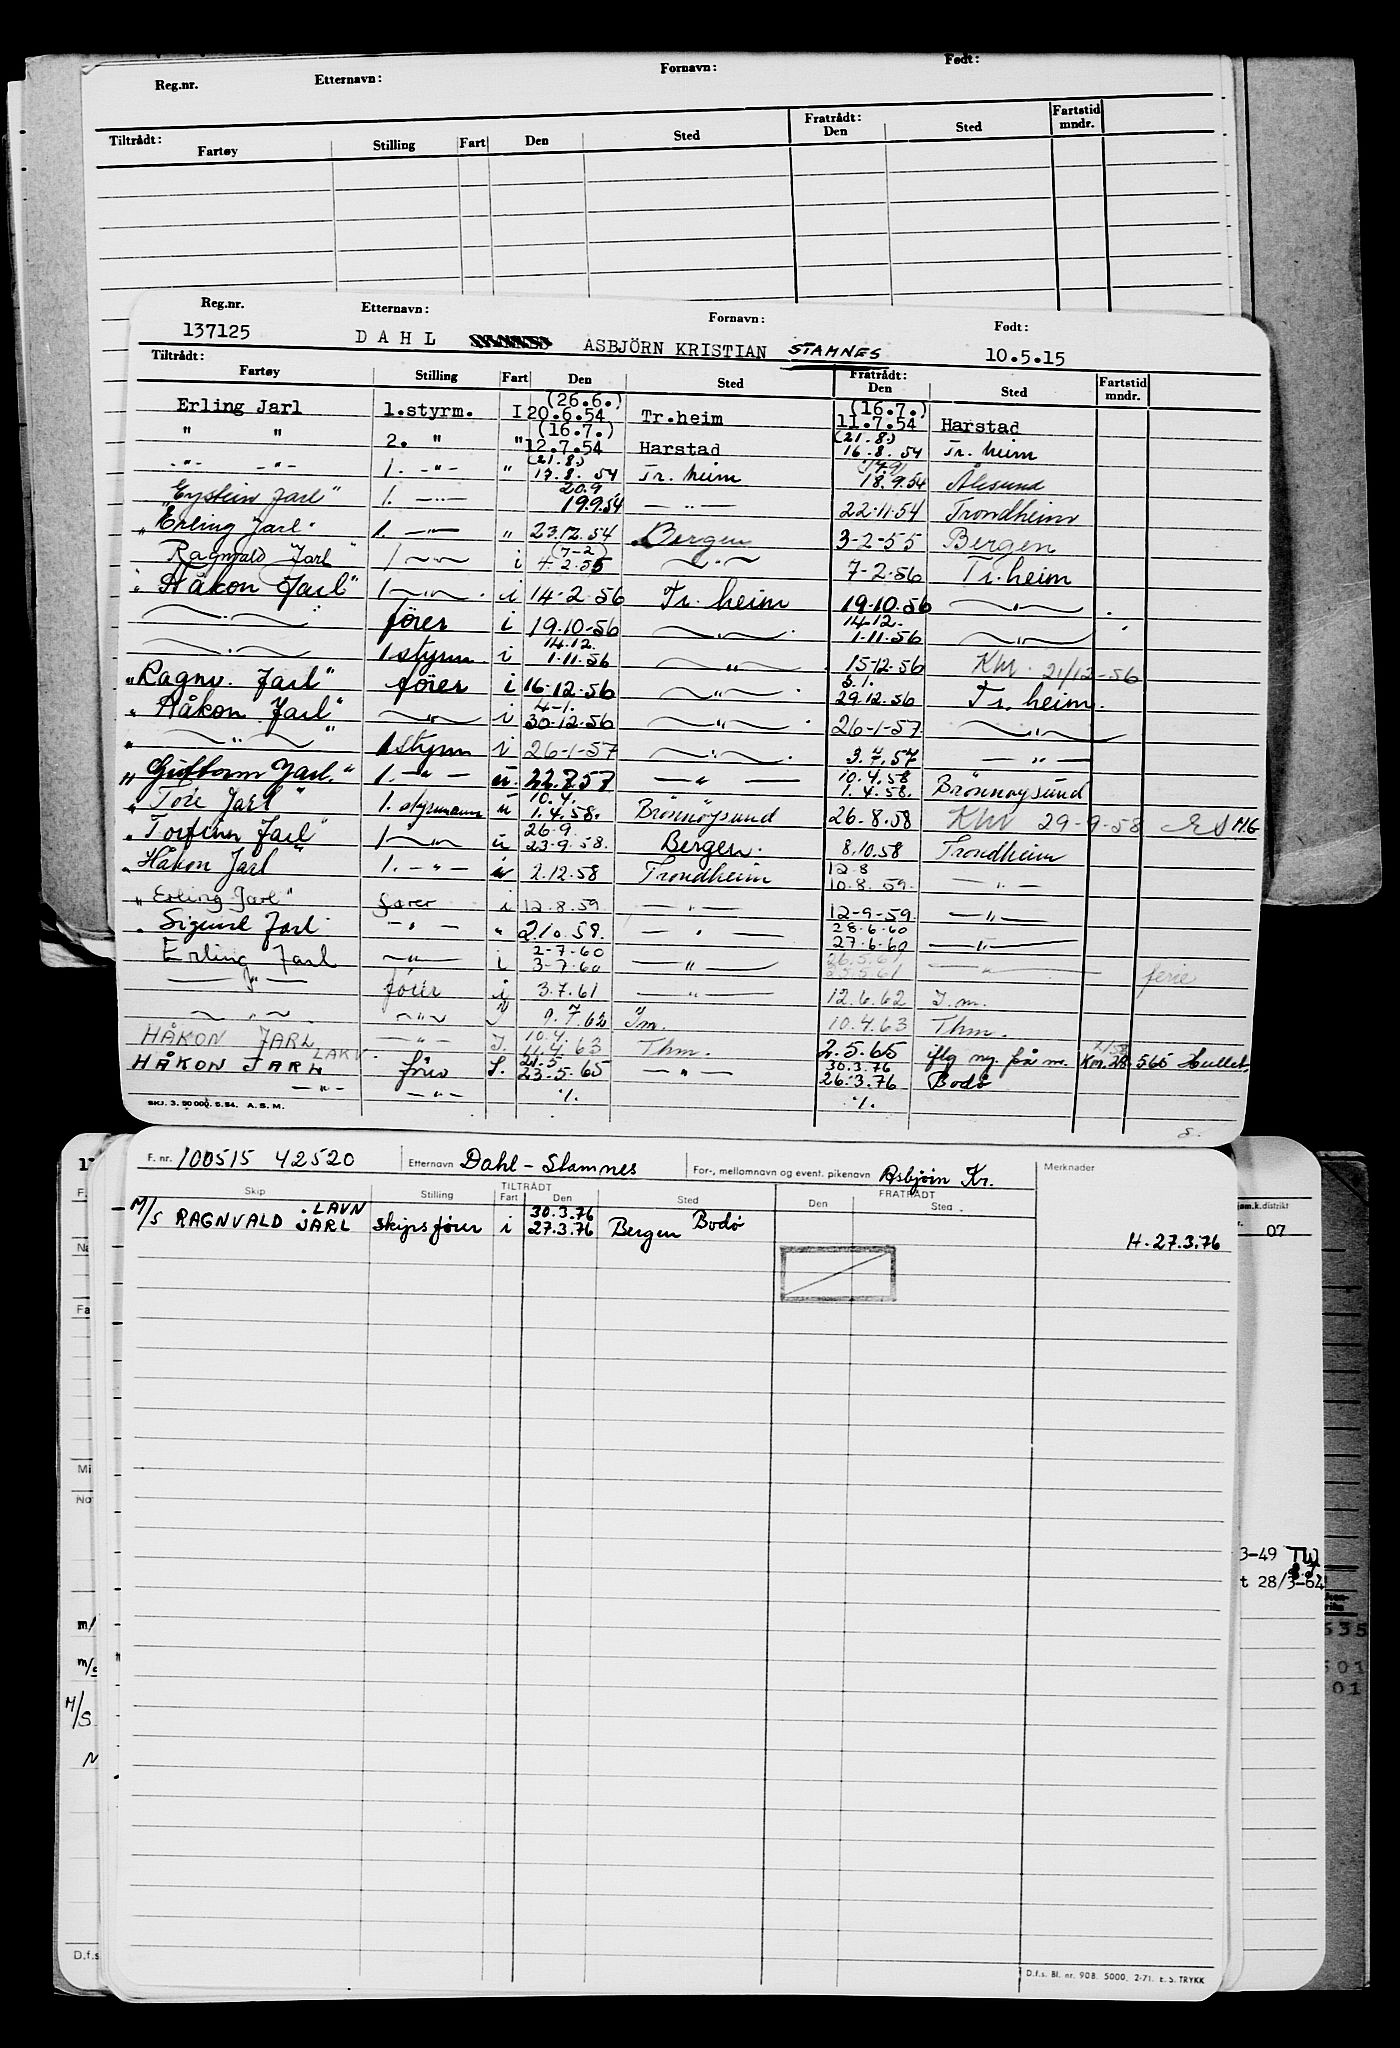 Reg.nr. Etternavn: Fornavn: Født:
Tiltrådt: Fratrådt: Fartstid
Fartøy Stilling Fart Den Sted Den Sted mndr.
Reg.nr. Etternavn: Fornavn: Født:
137125 DAHL ASBJÖRN KRISTIAN STAMNES 10.5.15
Tiltrådt: Fratrådt: Fartstid
Fartøy Stilling Fart Den Sted Den Sted mndr.
(26.6.) (16.7.)
Erling Jarl 1.styrm. I 20.6.54 Tr.heim 11.7.54 Harstad
(16.7.) (21.8.)
" " 2. " " 12.7.54 Harstad 16.8.54 Tr. heim
(21.8.) (17.9)
-"- -"- 1. -"- " 17.8.54 Tr. heim 18.9.54 Ålesund
20.9
"Eystein Jarl" 1. -"- 19.9.54 -"- 22-11-54 Trondheim
"Erling Jarl" 1. -"- " 23.12.54 Bergen 3-2-55 Bergen
(7-2)
Ragnvald Jarl" 1 -"- i 4.2.55 -"- 7-2-56 Tr. heim
"Håkon Jarl" 1 -"- i 14-2-56 Tr. heim 19-10-56 -"-
14.12.
-"- förer i 19.10-56 -"- 1-11-56 -"-
14.12.
-"- 1 styrm. i 1.11.56 -"- 15-12-56 Khr. 21/12-56
3.1.
"Ragnv. Jarl" förer i 16-12-56 -"- 29.12.56 Tr. heim.
4-1.
"Håkon Jarl" -"- i 30-12-56 -"- 26-1-57 -"-
" -"- " 1 styrm i 26-1-57 -"- 3.7.57 -"-
10.4.58
"Guttorm Jarl" 1. -"- u. 22.7.57 -"- 1.4.58. Brönnöysund
10.4.
"Tore Jarl" 1. styrmann u 1.4.58. Brönnöysund 26-8-58 Khr 29-9-58 MG
26.9.
"Torfinn Jarl" 1 -"- u 23-9-58. Bergen. 8.10.58 Trondheim
12-8
"Håkon Jarl" 1. -"- 2.12.58 Trondheim 10.8.59. -"-
"Erling Jarl" fører i 12.8.59. -"- 12-9-59. -"-
28-6-60
" Sigurd Jarl -"- " 2.10.59. -"- 27-6-60 -"-
2-7-60 26.5.61
Erling Jarl -"- i 3-7-60 -"- 25.5.61 -"- ferie
-"- förer i 3.7.61 -"- 12.6.62 T.m.
-"- -"- " 9.7.62 Tm. 10.4.63 Thm.
10.4.
HÅKON JARL -"- I. 11.4.63 Thm. 2.5.65 iflg ny.
LAKV 21.5 30.3.76
HÅKON JARL fører I. 23.5.65 -"- 26.3.76 Bodø
-"- -"- %. %.
SKJ. 3. 50 000. 5.54. A.S.M.
F. nr. 100515 42520 Etternavn Dahl-Stamnes For-, mellomnavn og event. pikenavn Asbjörn Kr. Merknader
TILTRÅDT FRATRÅDT
Skip Stilling Fart Den Sted Den Sted
LAVN 30.3.76
M/S RAGNVALD JARL skipsfører i 27.3.76 Bergen Bodö H-27.3.76
øm.k.distrikt
07
3-49 TW
t 28/3-64
535
501
01
17
F.
Na
Fa
Mi
No
m/
m/s
M/S
D.f.s
D.f.s. Bl. nr. 90B. 5000. 2-71. E. S. TRYKK